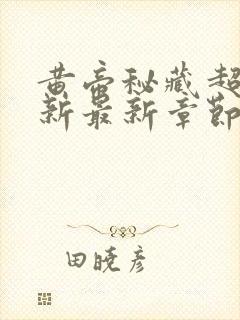 黄帝秘藏超
新最新章節
田曉彥